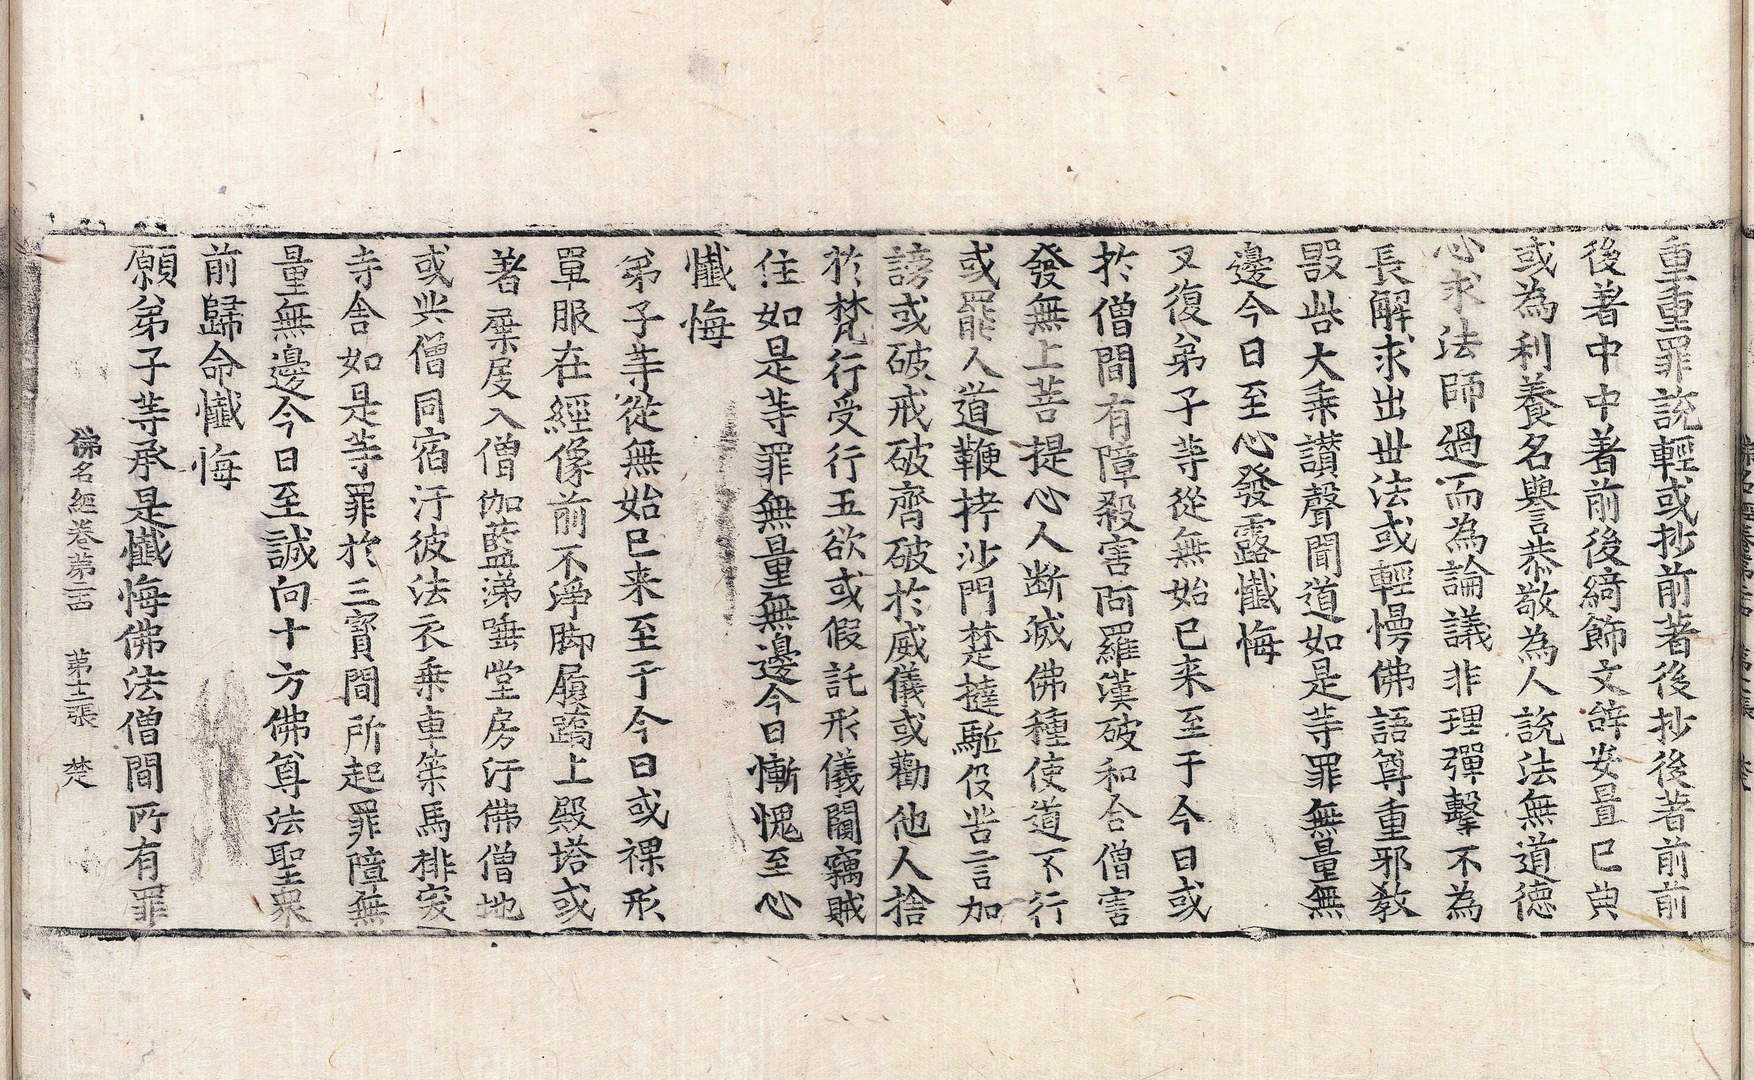 重重罪說輕或抄前著後抄後著前前
後著中中著前後綺飾文辞安置已典
或為利養名譽恭敬為人說法無道德
心求法師過而為論議非理彈擊不為
長解求出世法或輕慢佛語尊重邪教
毀呰大乘讃聲聞道如是等罪無量無
邊今日至心發露懺悔
又復弟子等從無始已来至于今日或
於僧間有障殺害阿羅漢破和合僧害
發無上菩提心人断滅佛種使道不行
或罷人道鞭拷沙門楚撻駈役苦言加
謗或破戒破齊破於威儀或勸他人捨
於梵行受行五欲或假託形儀闚竊賊
住如是等罪無量無邊今日慚愧至心
懺悔
弟子等從無始已来至于今日或裸形
單服在經像前不淨脚履踰上殿塔或
著屧屐入僧伽藍涕唾堂房汙佛僧地
或與僧同宿汙彼法衣乗車策馬排突
寺舍如是等罪於三寳間所起罪障無
量無邊今日至誠向十方佛尊法聖衆
前歸命懺悔
願弟子等承是懺悔佛法僧間所有罪
佛名經卷第二十四 第十二張 楚